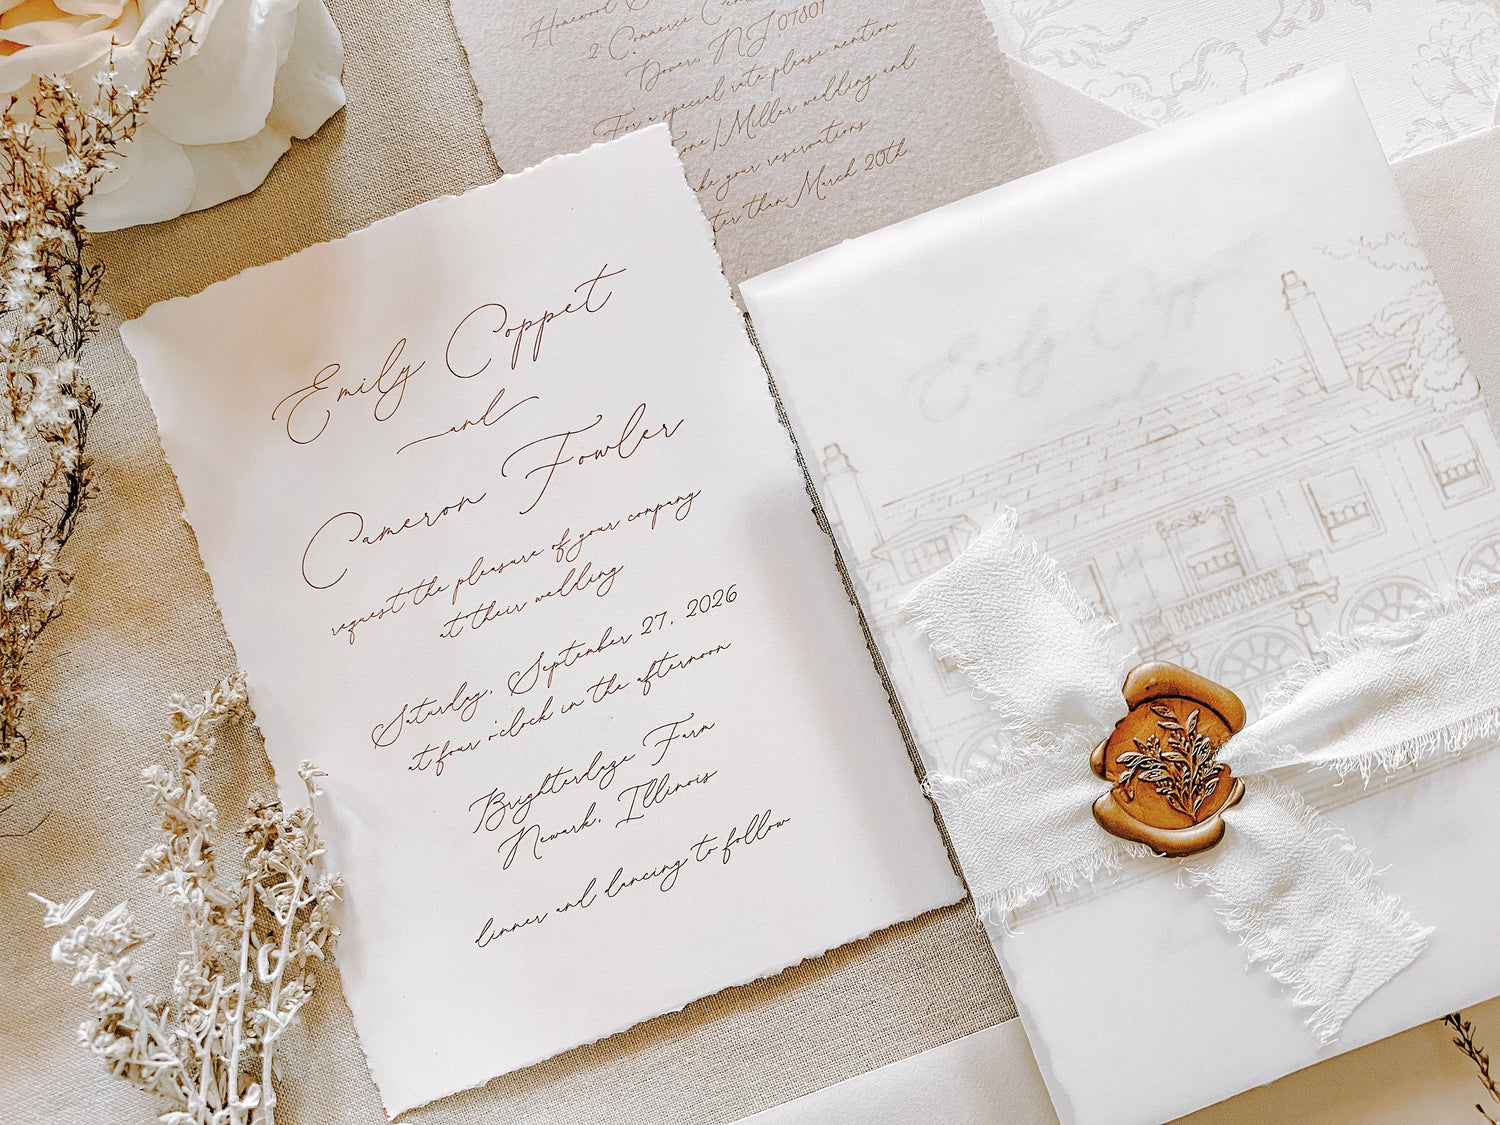 Homewood
2 Commerce
Dover, NJ 07801
For a special rate please mention
Miller wedding and
your reservations
than March 20th
Emily Coppet
and
Cameron Fowler
request the pleasure of your company
at their wedding
Saturday, September 27, 2026
at four o'clock in the afternoon
Brighterdaze Farm
Newark, Illinois
dinner and dancing to follow
Emily